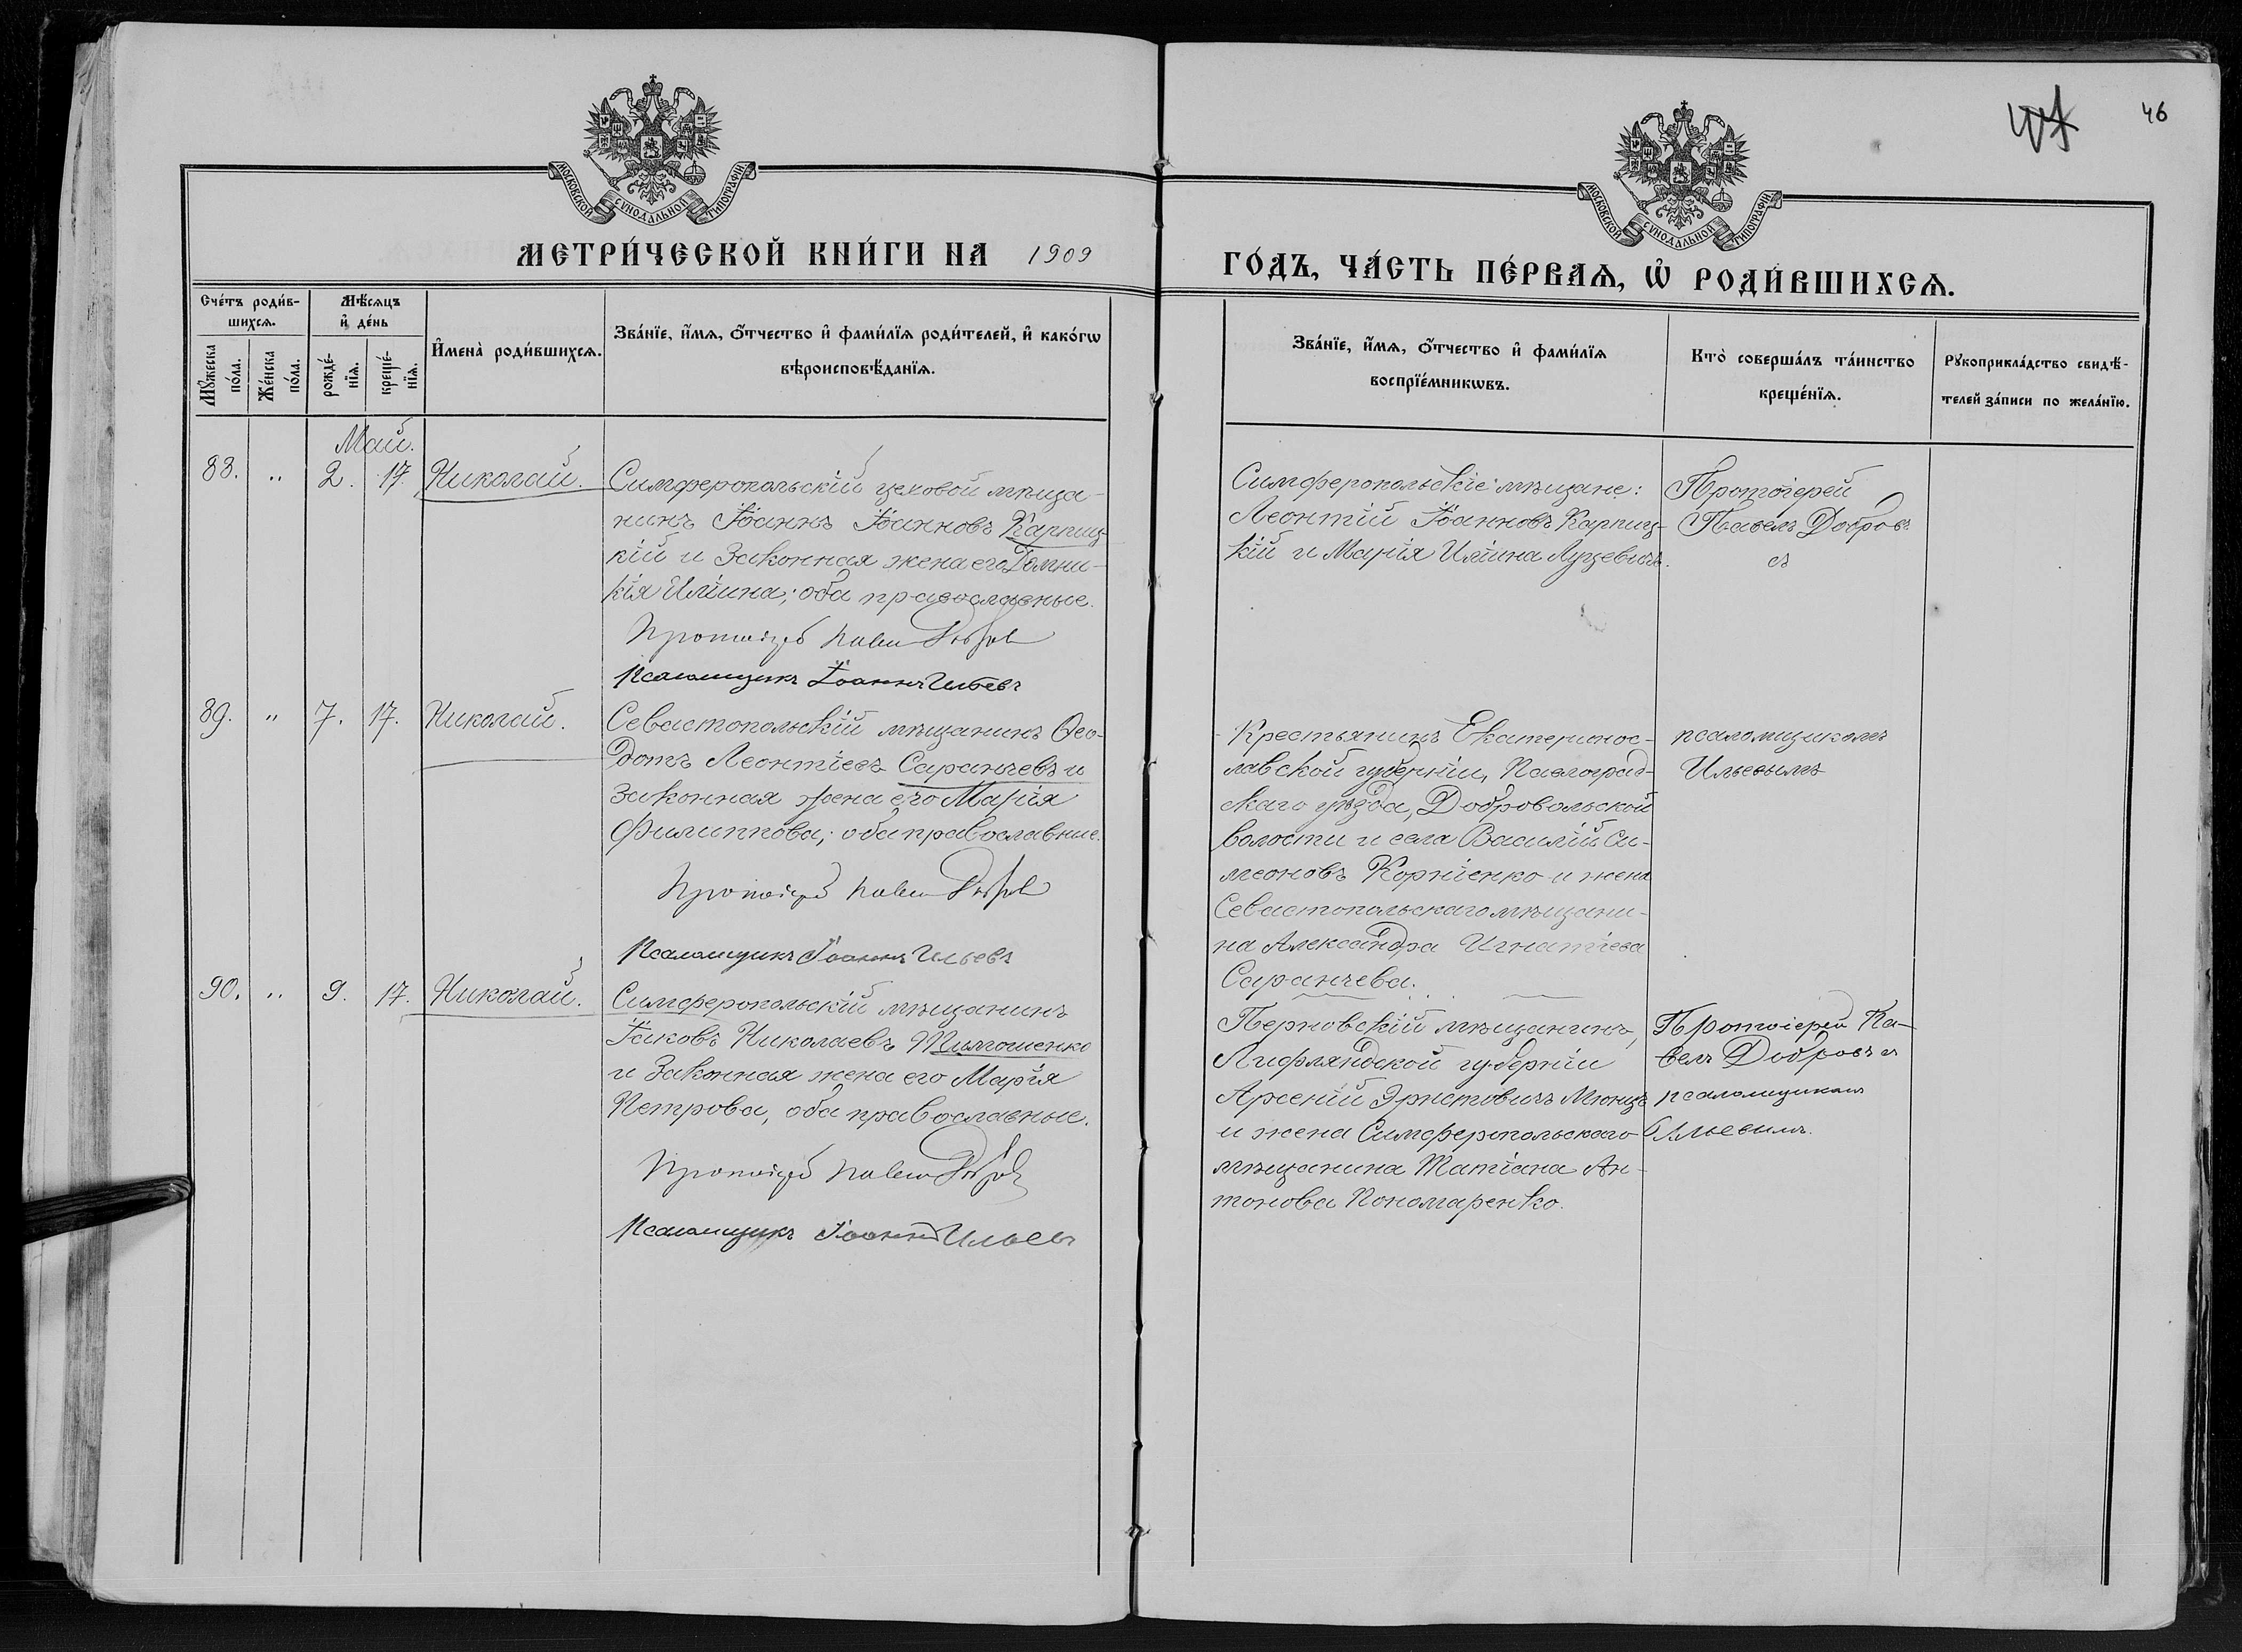 46
МОСКОВСКОЙ СУНОДАЛЬНОЙ ТИПОГРАФІИ
МОСКОВСКОЙ СУНОДАЛЬНОЙ ТИПОГРАФІИ
МЕТРИ́ЧЕСКОЙ КНИ́ГИ НА 1909
ГО́ДЪ, ЧА́СТЬ ПЕ́РВАѦ, Ѡ҆ РОДИ́ВШИХСѦ.
Сче́тъ роди́в-
шихсѧ.
Мѣ́сѧцъ
и҆ де́нь
Мꙋ́жеска
по́ла.
Же́нска
по́ла.
рожде́-
нїѧ.
креще́-
нїѧ.
И҆мена̀ роди́вшихсѧ.
Зва́нїе, и҆́мѧ, ѻ҆́тчество и҆ фами́лїѧ роди́телей, и҆ како́гѡ
вѣроисповѣ́данїѧ.
Зва́нїе, и҆́мѧ, ѻ҆́тчество и҆ фами́лїѧ
воспрїе́мникѡвъ.
Кто̀ соверша́лъ та́инство
креще́нїѧ.
Рꙋкоприкла́дство свидѣ́-
телей за́писи по жела́нїю.
Май.
88. " 2. 17. Николай.
Симферопольскій цеховой мѣща-
нинъ Іоаннъ Іоанновъ Карпиц-
кій и законная жена его Домни-
кія Иліина; оба православные.
Протоіерей Павелъ Добровъ
Псаломщикъ Іоаннъ Ильевъ
Симферопольскіе мѣщане:
Леонтій Іоанновъ Карпиц-
кій и Марія Иліина Луцевичъ.
Протоіерей
Павелъ Добровъ
съ
89. " 7. 17. Николай.
Севастопольскій мѣщанинъ Ѳео-
дотъ Леонтіевъ Саранчевъ и
законная жена его Марія
Филиппова; оба православные.
Протоіерей Павелъ Добровъ
Псаломщикъ Іоаннъ Ильевъ
Крестьянинъ Екатеринос-
лавской губерніи, Павлоград-
скаго уѣзда, Добровольской
волости и села Василій Си-
меоновъ Корніенко и жена
Севастопольскаго мѣщани-
на Александра Игнатіева
Саранчева.
псаломщикомъ
Ильевымъ
90. " 9. 17. Николай.
Симферопольскій мѣщанинъ
Іаковъ Николаевъ Тимошенко
и законная жена его Марія
Петрова, оба православные.
Протоіерей Павелъ Добровъ
Псаломщикъ Іоаннъ Ильевъ
Перновскій мѣщанинъ,
Лифляндской губерніи
Арсеній Эрнстовичъ Мюнцъ
и жена Симферопольскаго
мѣщанина Татіана Ан-
тонова Пономаренко.
Протоіерей Па-
велъ Добровъ съ
псаломщикомъ
Ильевымъ.